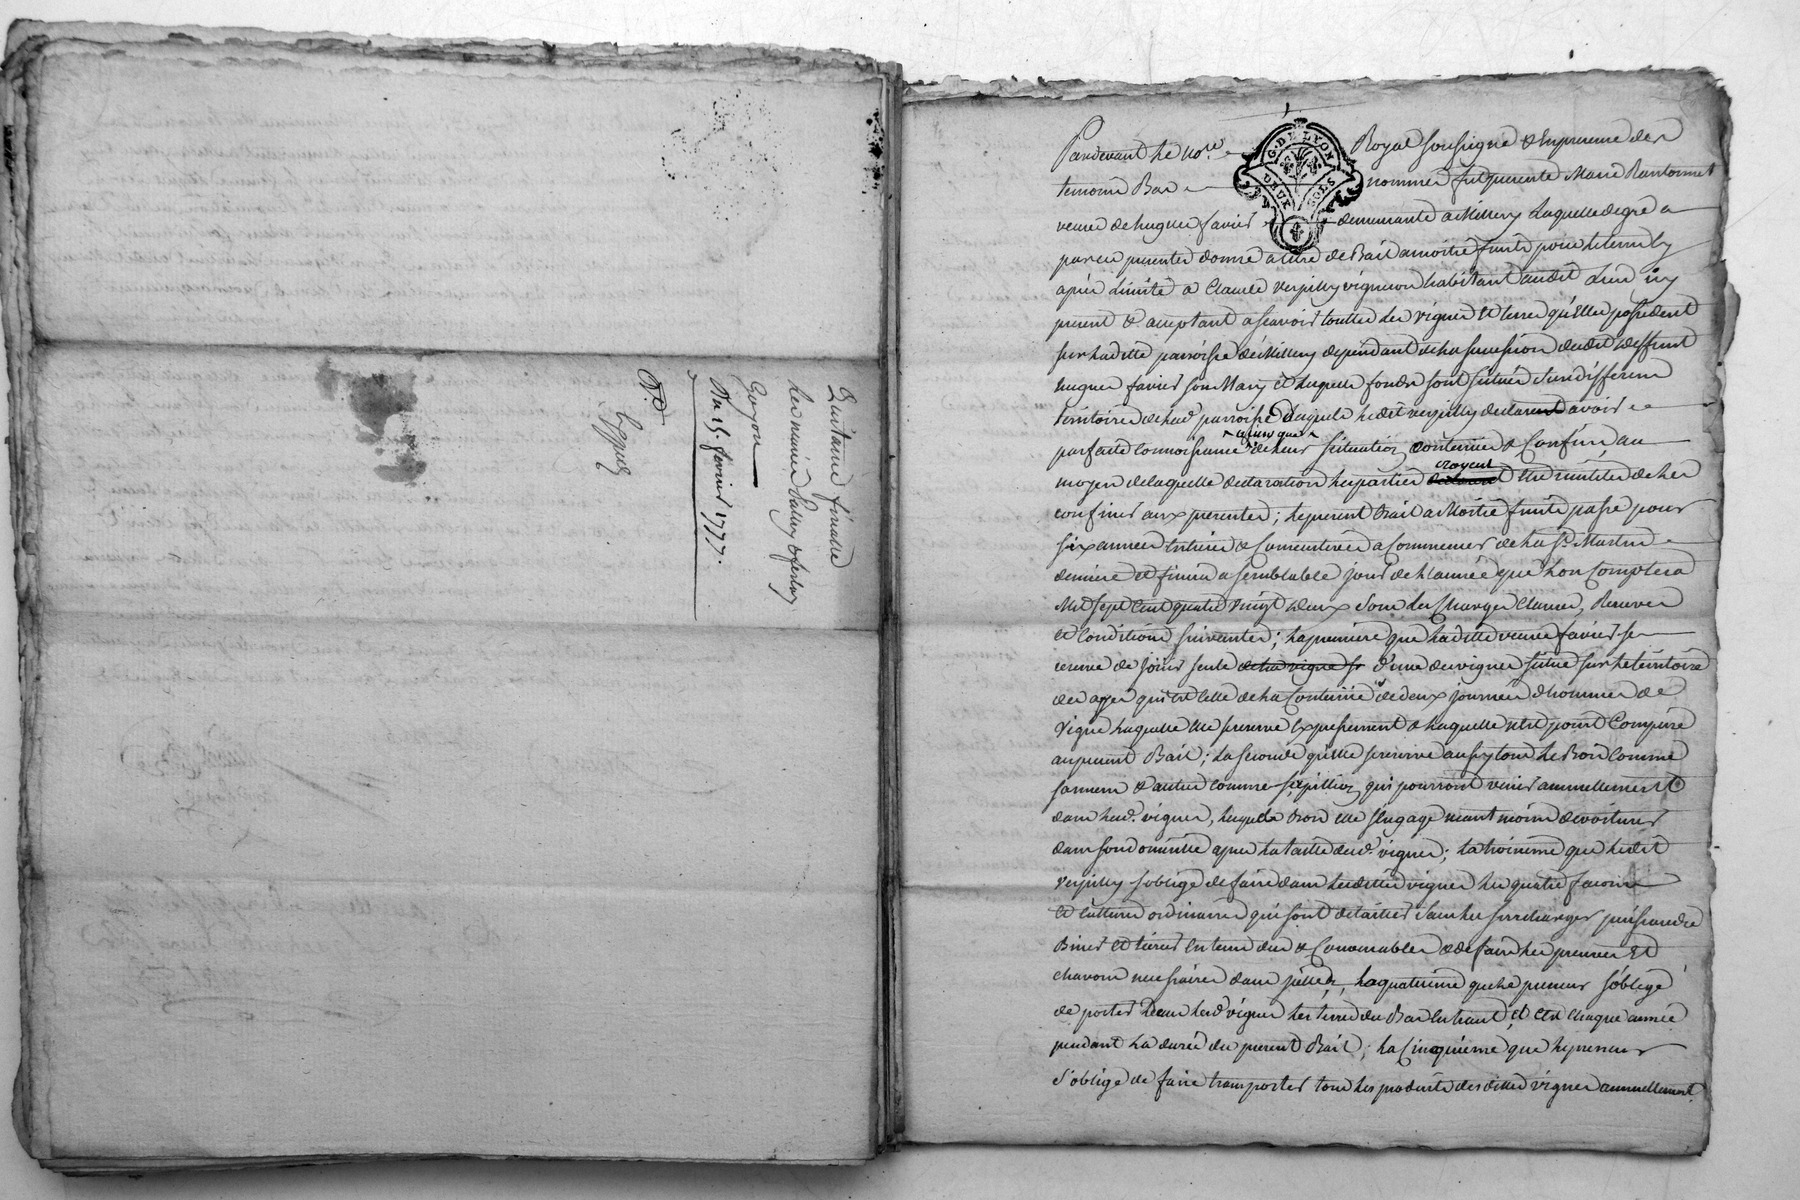 Quittance finalle
Les mariés Valluy & fesley
Goyon
Du 15. fevrier 1777.
Pardevant Le no.re Royal soussigné & En presence des
temoins Bas nommés fut presente Marie
veuve de hugue favier demeurante a Millery Laquelle de gré a
par ces presentes donné a titre de Bail a moitié fruits pour le temps cy
après Limité a Claude verpilly vigneron habitant audit Lieu icy
present & acceptant a scavoir touttes Les vignes Et terres qu'Elle possedent
sur Laditte parroisse de Millery dépendant de La succession dudit deffunt
hugues favier son Mary Et Lesquelle fonds sont situés sur differens
territoire de Lad. parroisse desquels Le dit verpilly declarent avoir
parfaite connoissance ainsy que de Leur situation contenüe & Confins, au
moyen de Laquelle declaration Les parties croyent declarent Etre inutiles de Les
confiner aux presentes; Le present Bail a Moitié fruits passé pour
six années Entieres & Consecutives a Commencer de La St. Martin
derniere Et finira a semblable jour de L'année que L'on Comptera
Mil sept Cent quatre vingt deux sous Les Charges Clauses, Reserves
Et Conditions suivantes; La premiere que Laditte veuve favier se
reserve de joüir seule de La vigne sr d'une des vignes située sur Le territoire
des ayes qui Est Celle de La Contenüe de deux journées d'hommes de
vigne Laquelle Elle se reserve Expressement & Laquelle n'Est point Comprise
au present Bail; La seconde qu'Elle se reserve aussy tous Le Bois Comme
sarment & autres comme qui pourront venir annuellement
dans Lesd. vignes, Lesquels Bois Elle s'Engage neantmoins de voiturer
dans son domicille apres La taille desd. vignes; La troisieme que Ledit
verpilly s'oblige de faire dans Lesdittes vignes Les quatre facons
Et Cultures ordinaires qui sont de tailler sans Les surcharger,
Biner Et tiercer En tems dus & Convenables & de faire Les preuves Et
chavons necessaires dans Icelles, La quatrieme que Le preneur s'oblige
de porter dans Lesd. vignes Les terres du Bas En haut, Et Ce chaque année
pendant La durée du present Bail; La Cinquieme que Le preneur
s'oblige de faire transporter tous Les produits desdittes vignes annuellement
G. DE LYON
DEUX SOLS